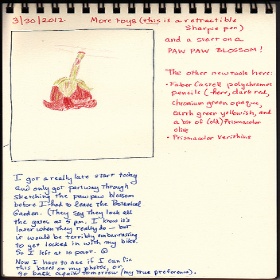 3/30/2012 More toys (this is a retractible
Sharpie pen)
and a start on a
PAW PAW BLOSSOM!
The other new tools here:
• Faber Castell polychromos
pencils (-here, dark red,
chromium green opaque,
earth green yellowish, and
a bit of (old) Prismacolor
else
• Prismacolor Verithins
I got a really late start today
and only got partway through
sketching the paw paw blossom
before I had to leave the Botanical
Garden. (They say they lock all
the gates at 5 pm. I know it's
later when they really do — but
it would be terribly embarrassing
to get locked in with my bike!
So I left at 10 past.
Now I have to see if I can fin
this based on my photos, or
go back again tomorrow (my true preference).